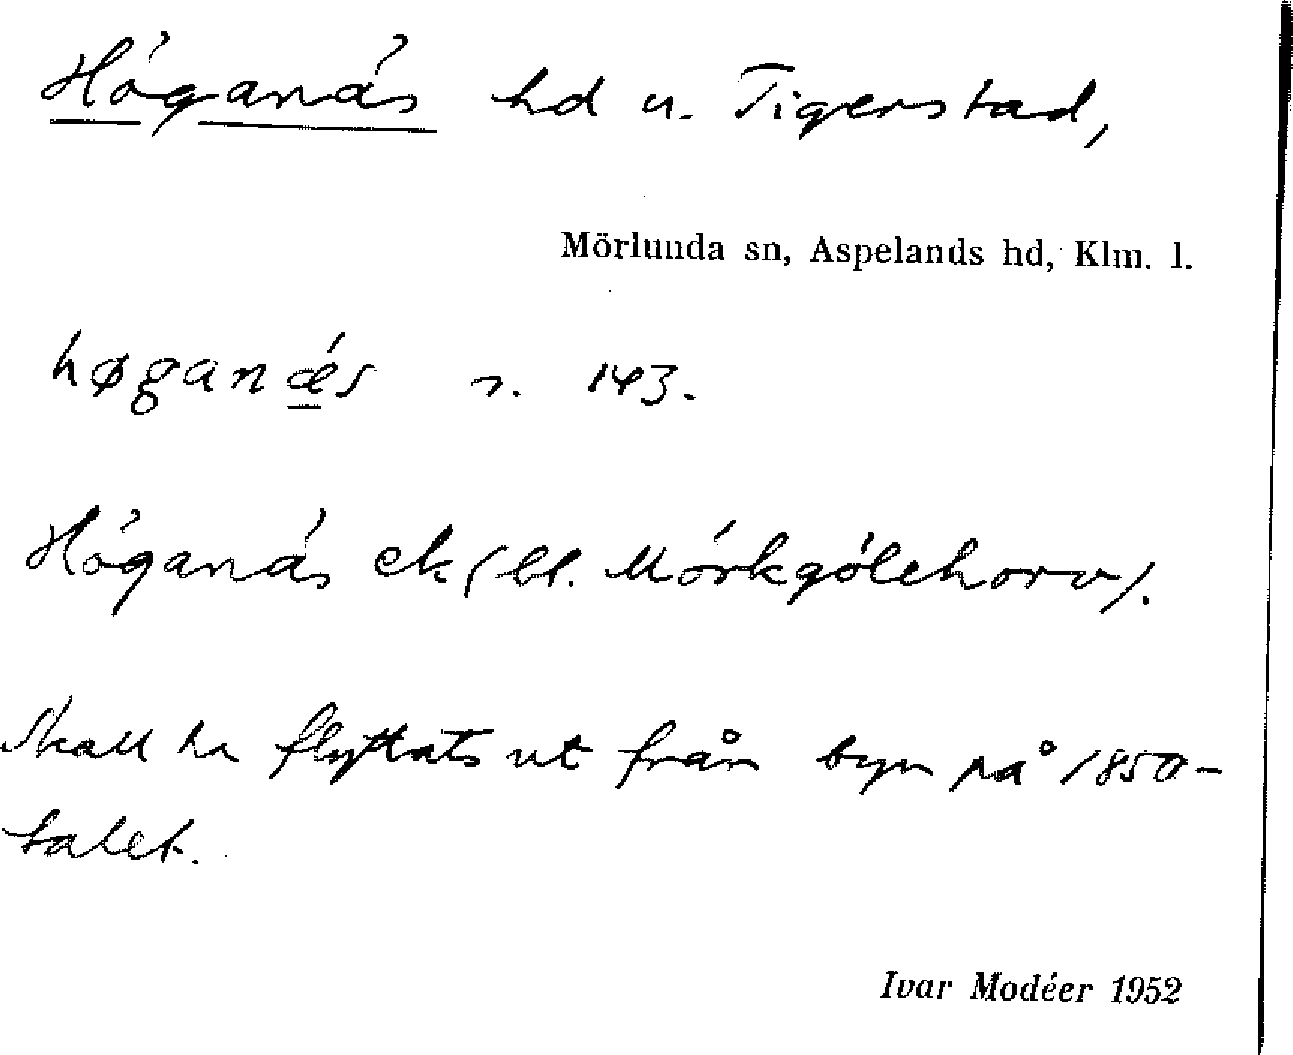 Höganäs hd u. Tigerstad,
Mörlunda sn, Aspelands hd, Klm. l.
høganǽs n. 143.
Höganäs ek (bl. Mörkgölehorv).
Skall ha flyttats ut från byn på 1850-
talet.
Ivar Modéer 1952